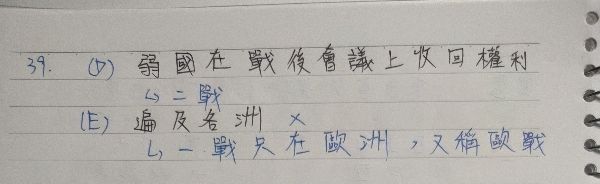 39. (D) 弱國在戰後會議上收回權利
↳二戰
(E) 遍及各洲 ×
↳一戰只在歐洲，又稱歐戰